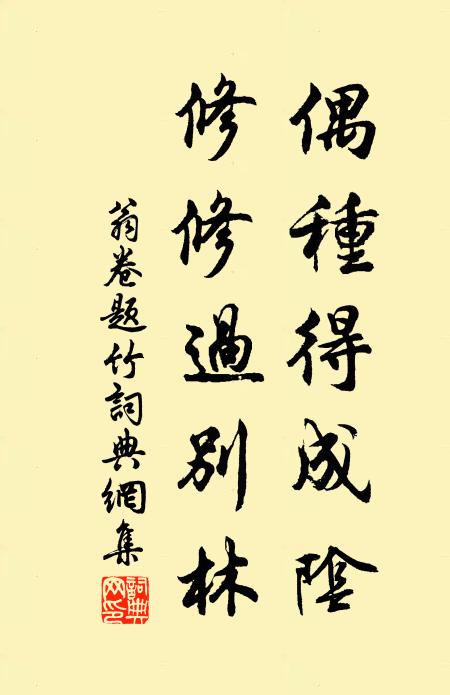 偶種得成陰
修修過別林
翁卷題竹詞典網集